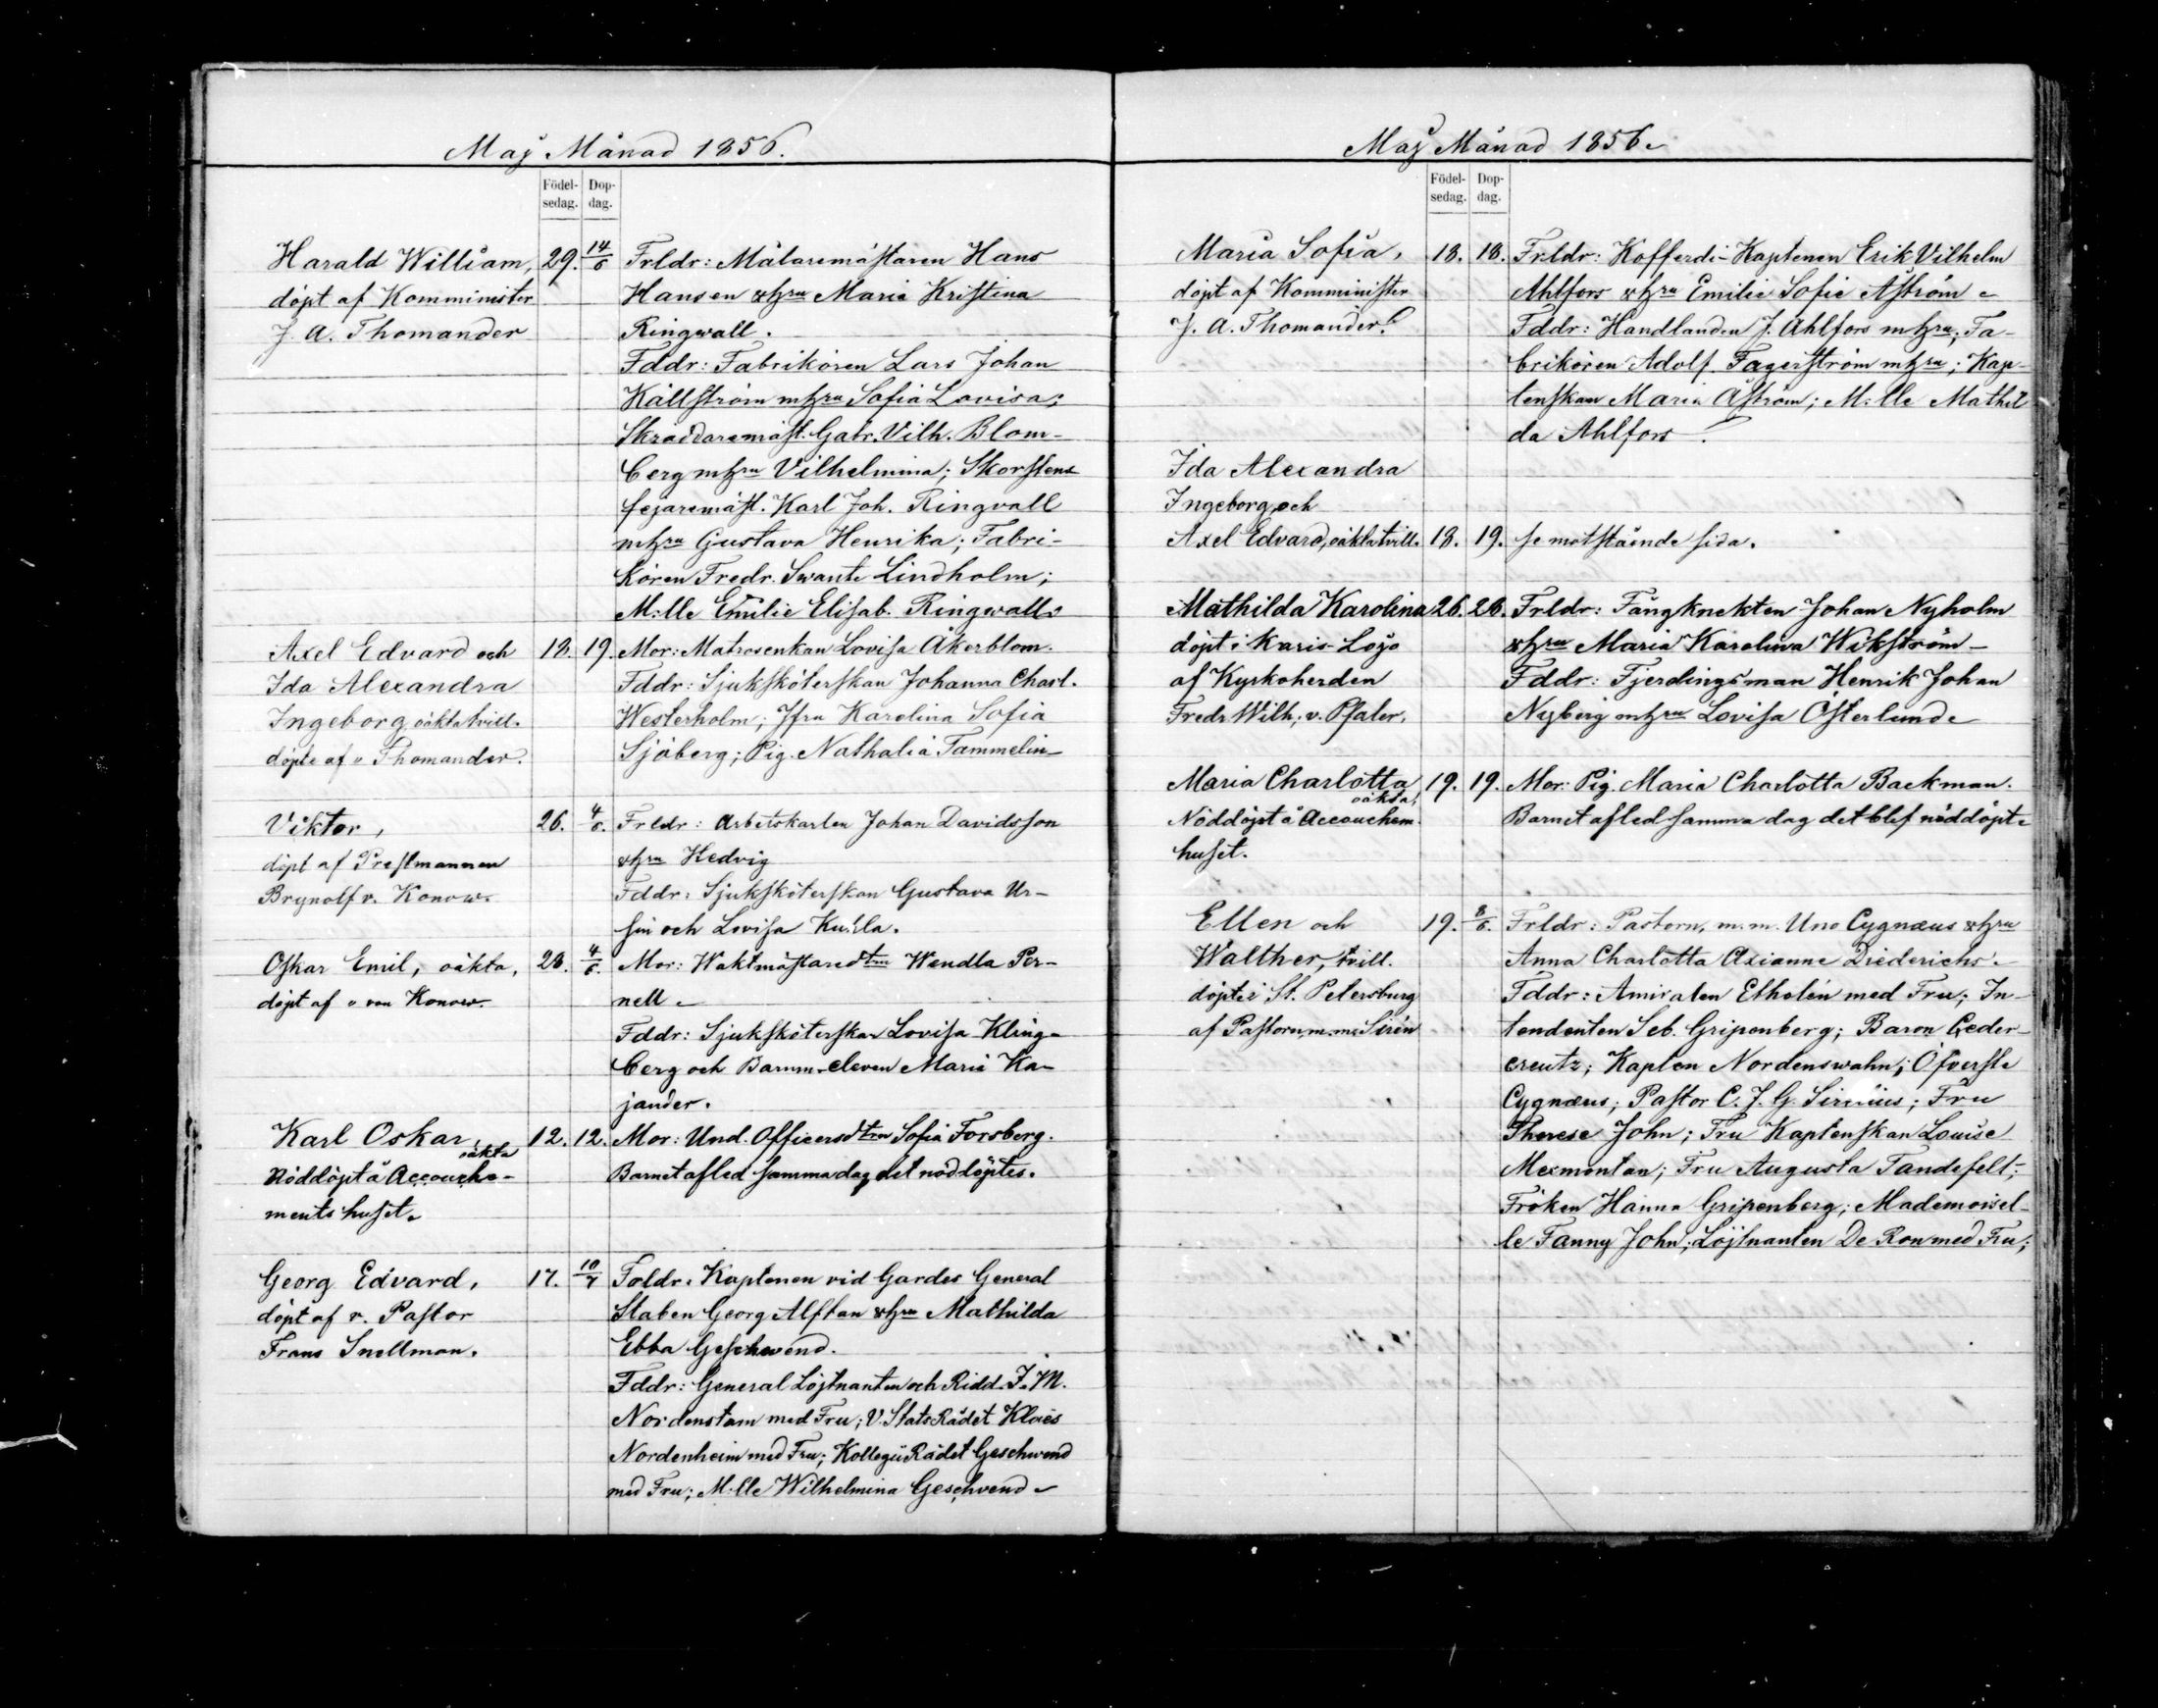 Maj Månad 1856.
Födel-
sedag.
Dop-
dag.
Harald William, 29. 14/6 Frldr: Målaremästaren Hans
döpt af Komminister Hansen o hru Maria Kristina
J. A. Thomander Ringwall.
Fddr: Fabrikören Lars Johan
Källström m hru Sofia Lovisa;
Skräddaremäst. Gabr. Vilh. Blom-
berg m hru Vilhelmina; Skorstens
fejaremäst. Karl Joh. Ringvall
m hru Gustava Henrika; Fabri-
kören Fredr. Swante Lindholm;
M:lle Emilie Elisab. Ringwall.
Axel Edvard och 18. 19. Mor: Matrosenkan Lovisa Åkerblom.
Ida Alexandra Fddr: Sjuksköterskan Johanna Charl.
Ingeborg oäkta tvill. Westerholm; Jfru Karolina Sofia
döpte af " Thomander. Sjöberg; Pig. Nathalia Tammelin
Viktor, 26. 4/6. Frldr: Arbetskarlen Johan Davidsson
döpt af Prestmannen o hru Hedvig
Brynolf v. Konow. Fddr: Sjuksköterskan Gustava Ur-
sin och Lovisa
Oskar Emil, oäkta, 28. 4/6. Mor: Waktmästaredtrn Wendla Per-
döpt af " von Konow. nell.
Fddr: Sjuksköterskan Lovisa Kling-
berg och Barnm-eleven Maria Ka-
jander.
Karl Oskar, oäkta 12. 12. Mor: Und. Officersdtrn Sofia Forsberg.
Nöddöpt å Accouche- Barnet afled samma dag det nöddöptes.
ments huset.
Georg Edvard, 17. 10/7 Foldr. Kaptenen vid Gardes General
döpt af v. Pastor Staben Georg Alftan o hru Mathilda
Frans Snellman. Ebba Geschwend.
Fddr: General Löjtnanten och Ridd. J. M.
Nordenstam med Fru; V. Stats Rådet Klaës
Nordenheim med Fru; Kollegii Rådet Geschwend
med Fru; M:lle Wilhelmina Geschvend
Maj Månad 1856.
Födel-
sedag.
Dop-
dag.
Maria Sofia, 18. 18. Frldr: Kofferdi-Kaptenen Erik Vilhelm
döpt af Komminister Ahlfors o hru Emilie Sofie Åström
J. A. Thomander. Fddr: Handlanden J. Ahlfors m hru; Fa-
brikören Adolf Fagerström m hru; Kap-
tenskan Maria Åström; M:lle Mathil
da Ahlfors.
Ida Alexandra
Ingeborg och
Axel Edvard, oäkta tvill. 18. 19. se motstående sida.
Mathilda Karolina 26. 26. Frldr: Fångknekten Johan Nyholm
döpt i Karis-Lojo o hru Maria Karolina Wikström
af Kyrkoherden Fddr: Fjerdingsman Henrik Johan
Fredr Wilh. v. Pfaler. Nyberg m hru Lovisa Österlund
Maria Charlotta oäkta, 19. 19. Mor: Pig. Maria Charlotta Backman.
Nöddöpt å Accouchem. Barnet afled samma dag det blef nöddöpt
huset.
Ellen och 19. 8/6. Frldr: Pastorn, m.m. Uno Cygnæus o hru
Walther, tvill. Anna Charlotta Axianne Diederichs.
döpte i St. Petersburg Fddr: Amiralen Etholén med Fru; In-
af Pastorn, m.m. Sirén tendenten Seb. Gripenberg; Baron Ceder-
creutz; Kapten Nordenswahn; Öfverste
Cygnæus; Pastor C. J. G. Sirenius; Fru
Therese John; Fru Kaptenskan Louise
Mexmontan; Fru Augusta Tandefelt;
Fröken Hanna Gripenberg; Mademoisel-
le Fanny John; Löjtnanten De Ron med Fru;